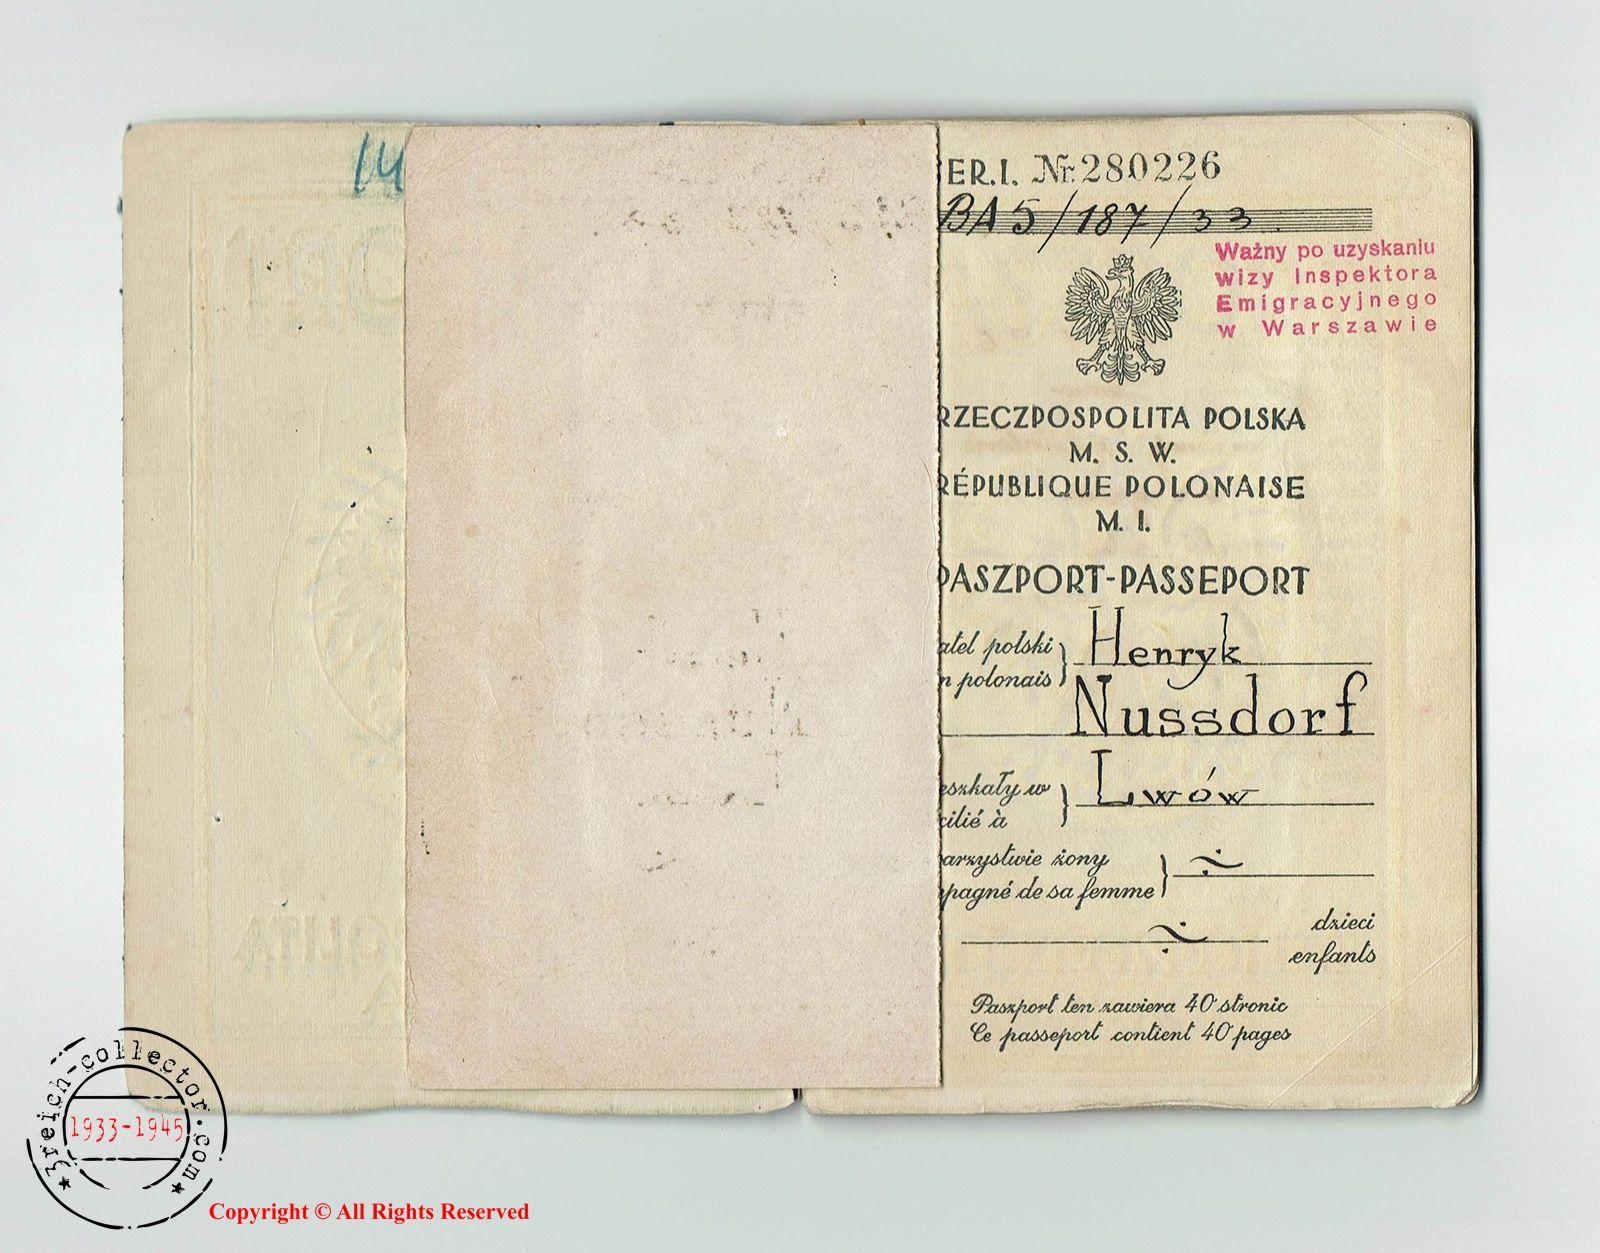 14
ER.I. Nr 280226
BA5/187/33
Ważny po uzyskaniu
wizy Inspektora
Emigracyjnego
w Warszawie
RZECZPOSPOLITA POLSKA
M. S. W.
RÉPUBLIQUE POLONAISE
M. I.
PASZPORT-PASSEPORT
atel polski
n polonais
Henryk
Nussdorf
eszkały w
cilié à
Lwów
arzystwie żony
pagné de sa femme
dzieci
enfants
Paszport ten zawiera 40 stronic
Ce passeport contient 40 pages
3reich-collector.com
1933-1945
Copyright © All Rights Reserved